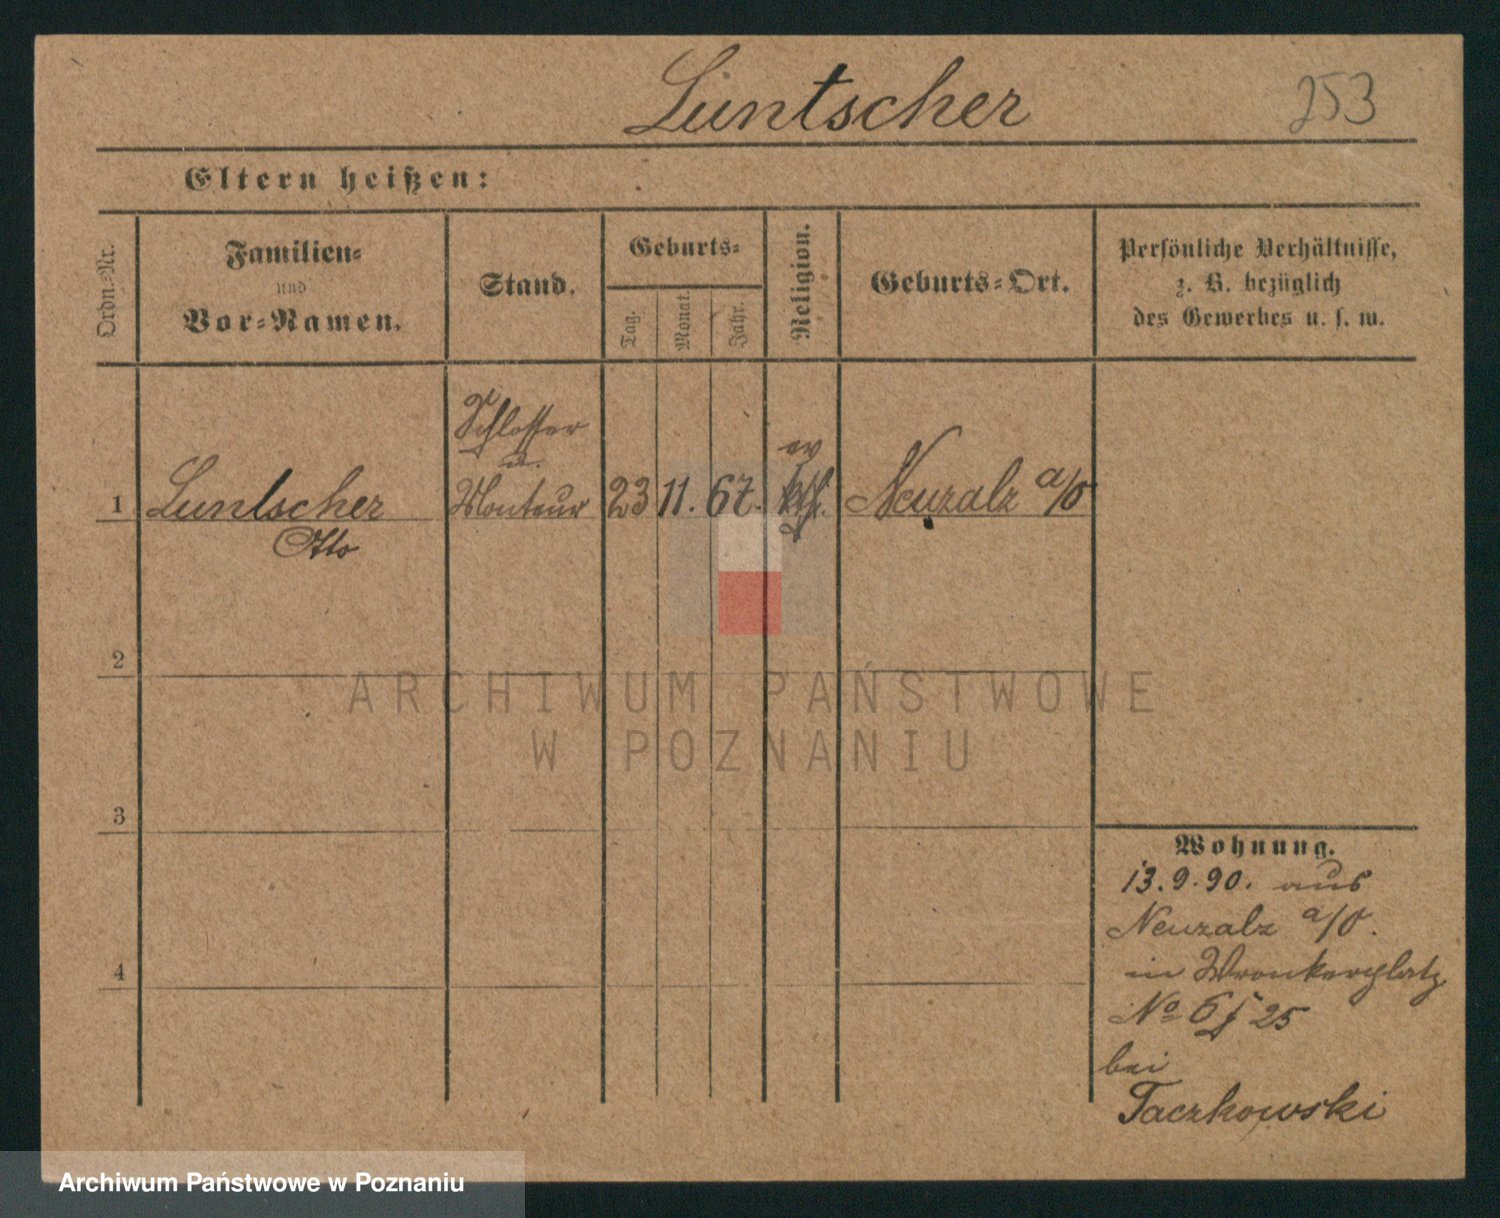 Luntscher 253
Eltern heißen:
Ordn.-Nr. Familien- und Vor-Namen. Stand. Geburts- Tag. Monat. Jahr. Religion. Geburts-Ort. Persönliche Verhältnisse, z. B. bezüglich des Gewerbes u. s. w.
Schlosser
u.
ev
1 Luntscher Monteur 23 11. 67. kth. Neuzalz a/O
Otto
2
ARCHIWUM PAŃSTWOWE
W POZNANIU
3
Wohnung.
13.9.90. aus
Neuzalz a/O.
4
in Wronkerplatz
No 6 25
bei
Taczkowski
Archiwum Państwowe w Poznaniu